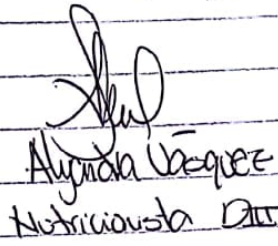 Alejandra Vásquez
Nutricionista DIII